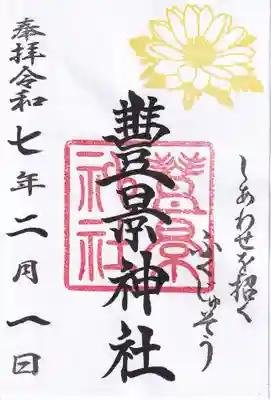 しあわせを招く
ふくじゅそう
豊景神社
豊景神社
奉拝令和七年二月八日